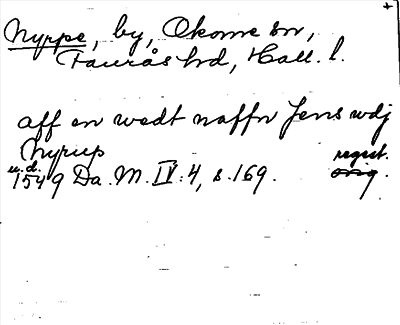 +
Nyrpe, by, Okome sn,
Faurås hd, Hall. l.
aff en wedt naffn Jens wdj
Nyrup
u.d. regist.
1549 Da. M. IV: 4, s. 169. orig.